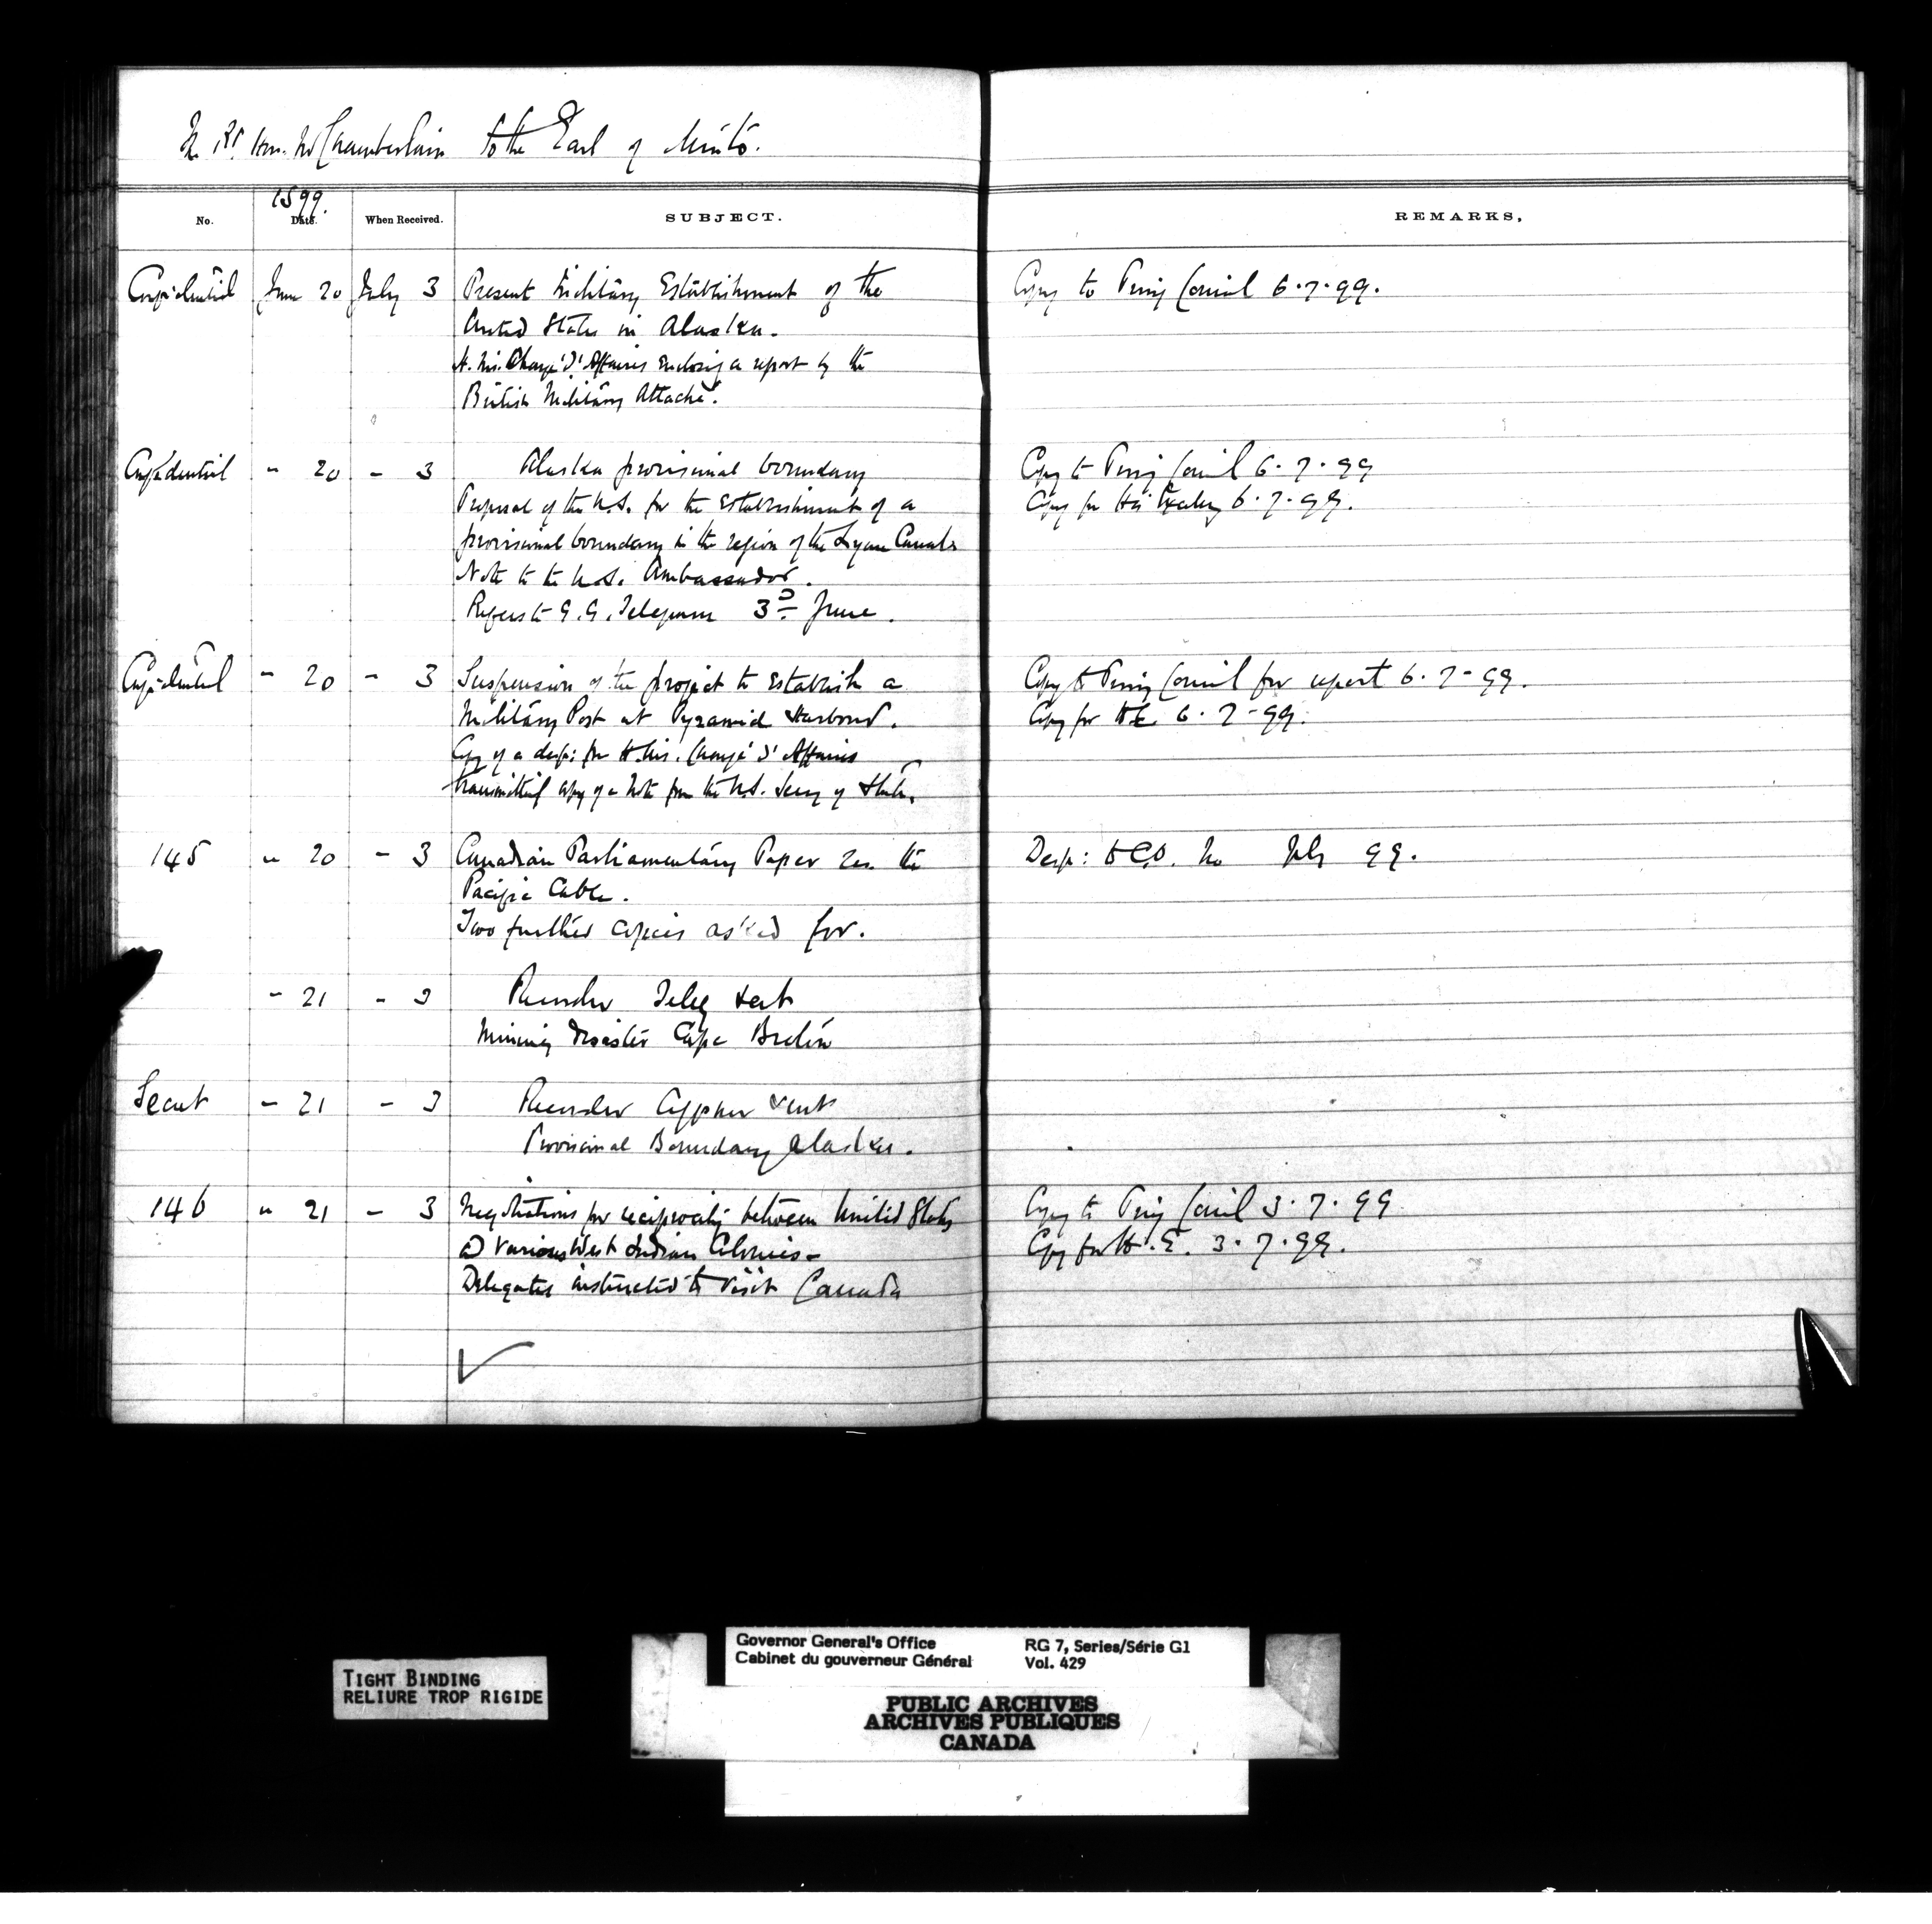 The Rt. Hon. Mr Chamberlain to the Earl of Minto.
1899.
No. Date. When Received. SUBJECT. REMARKS.
Confidential June 20 July 3 Present Military Establishment of the Copy to Privy Council 6.7.99.
United States in Alaska.
H. M's. Chargé d'Affaires enclosing a report by the
British Military Attaché.
Confidential " 20 - 3 Alaska provisional boundary Copy to Privy Council 6.7.99
Proposal of the U.S. for the establishment of a Copy for His Excellency 6.7.99.
provisional boundary in the region of the Lynn Canal.
Note to the U.S. Ambassador.
Refers to G.G. Telegram 3D June.
Confidential - 20 - 3 Suspension of the project to establish a Copy to Privy Council for report 6.7-99.
Military Post at Pyramid Harbour. Copy for H.E. 6.7-99.
Copy of a desp: fr H.M's. Chargé d'Affaires
transmitting copy of a Note from the U.S. Secy of State.
145 " 20 - 3 Canadian Parliamentary Paper re. the Desp: to C.O. No July 99.
Pacific Cable.
Two further copies asked for.
- 21 - 3 Recorder Teleg sent
Mining disaster Cape Breton
Secret - 21 - 3 Recorder Cypher sent
Provisional Boundary Alaska.
146 " 21 - 3 Negotiations for reciprocity between United States Copy to Privy Council 3.7.99
and various West Indian Colonies - Copy for H.E. 3.7.99.
Delegates instructed to visit Canada
TIGHT BINDING
RELIURE TROP RIGIDE
Governor General's Office RG 7, Series/Série G1
Cabinet du gouverneur Général Vol. 429
PUBLIC ARCHIVES
ARCHIVES PUBLIQUES
CANADA